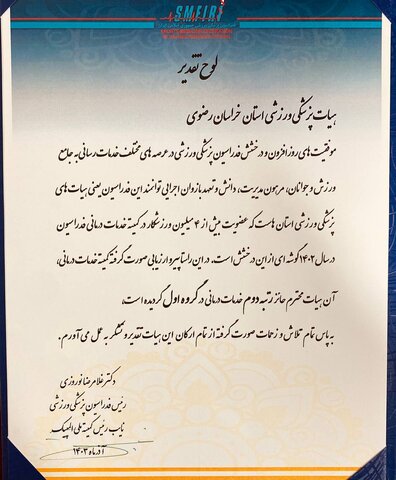 SMFIRI
لوح تقدیر
هیات پزشکی ورزشی استان خراسان رضوی
موفقیت های روزافزون و درخشش فدراسیون پزشکی ورزشی در عرصه های مختلف خدمات رسانی به جامع
ورزش و جوانان، مرهون مدیریت، دانش و تعهد بازوان اجرایی توانمند این فدراسیون یعنی هیات های
پزشکی ورزشی استان هاست که عضویت بیش از ۴ میلیون ورزشکار در کمیته خدمات درمانی فدراسیون
در سال ۱۴۰۲ گوشه ای از این درخشش است. در این راستا پیرو ارزیابی صورت گرفته کمیته خدمات درمانی،
آن هیات محترم حائز رتبه دوم خدمات درمانی در گروه اول گردیده است؛
به پاس تمام تلاش و زحمات صورت گرفته از تمام ارکان این هیات تقدیر و تشکر به عمل می آورم.
دکتر غلامرضا نوروزی
رئیس فدراسیون پزشکی ورزشی
نایب رئیس کمیته ملی المپیک
آذرماه ۱۴۰۳